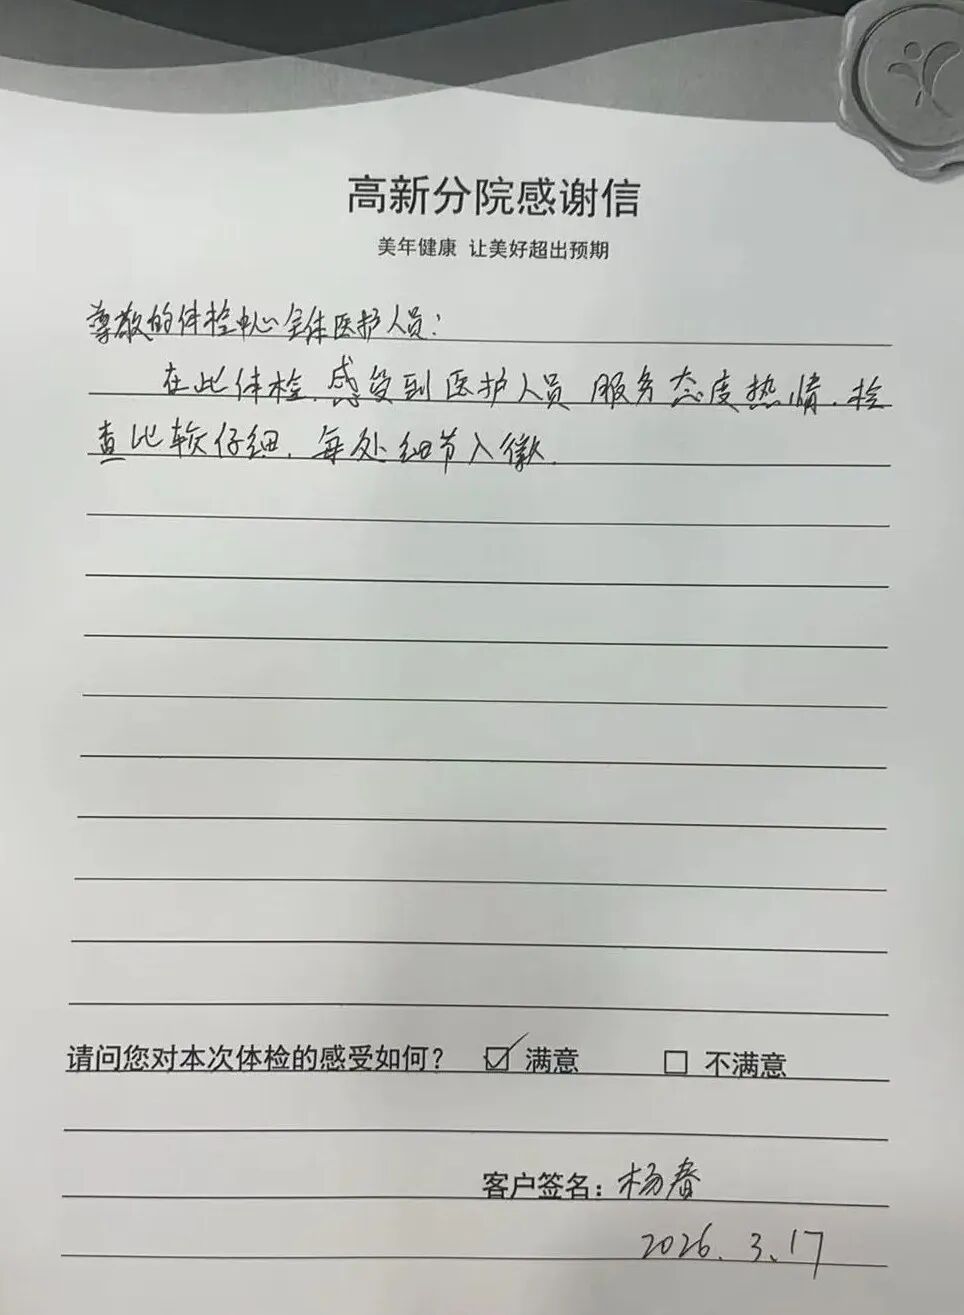 高新分院感谢信
美年健康 让美好超出预期
尊敬的体检中心全体医护人员：
在此体检，感受到医护人员服务态度热情，检
查比较仔细，每处细节入微。
请问您对本次体检的感受如何？ ☑ 满意 □ 不满意
客户签名：杨春
2026.3.17